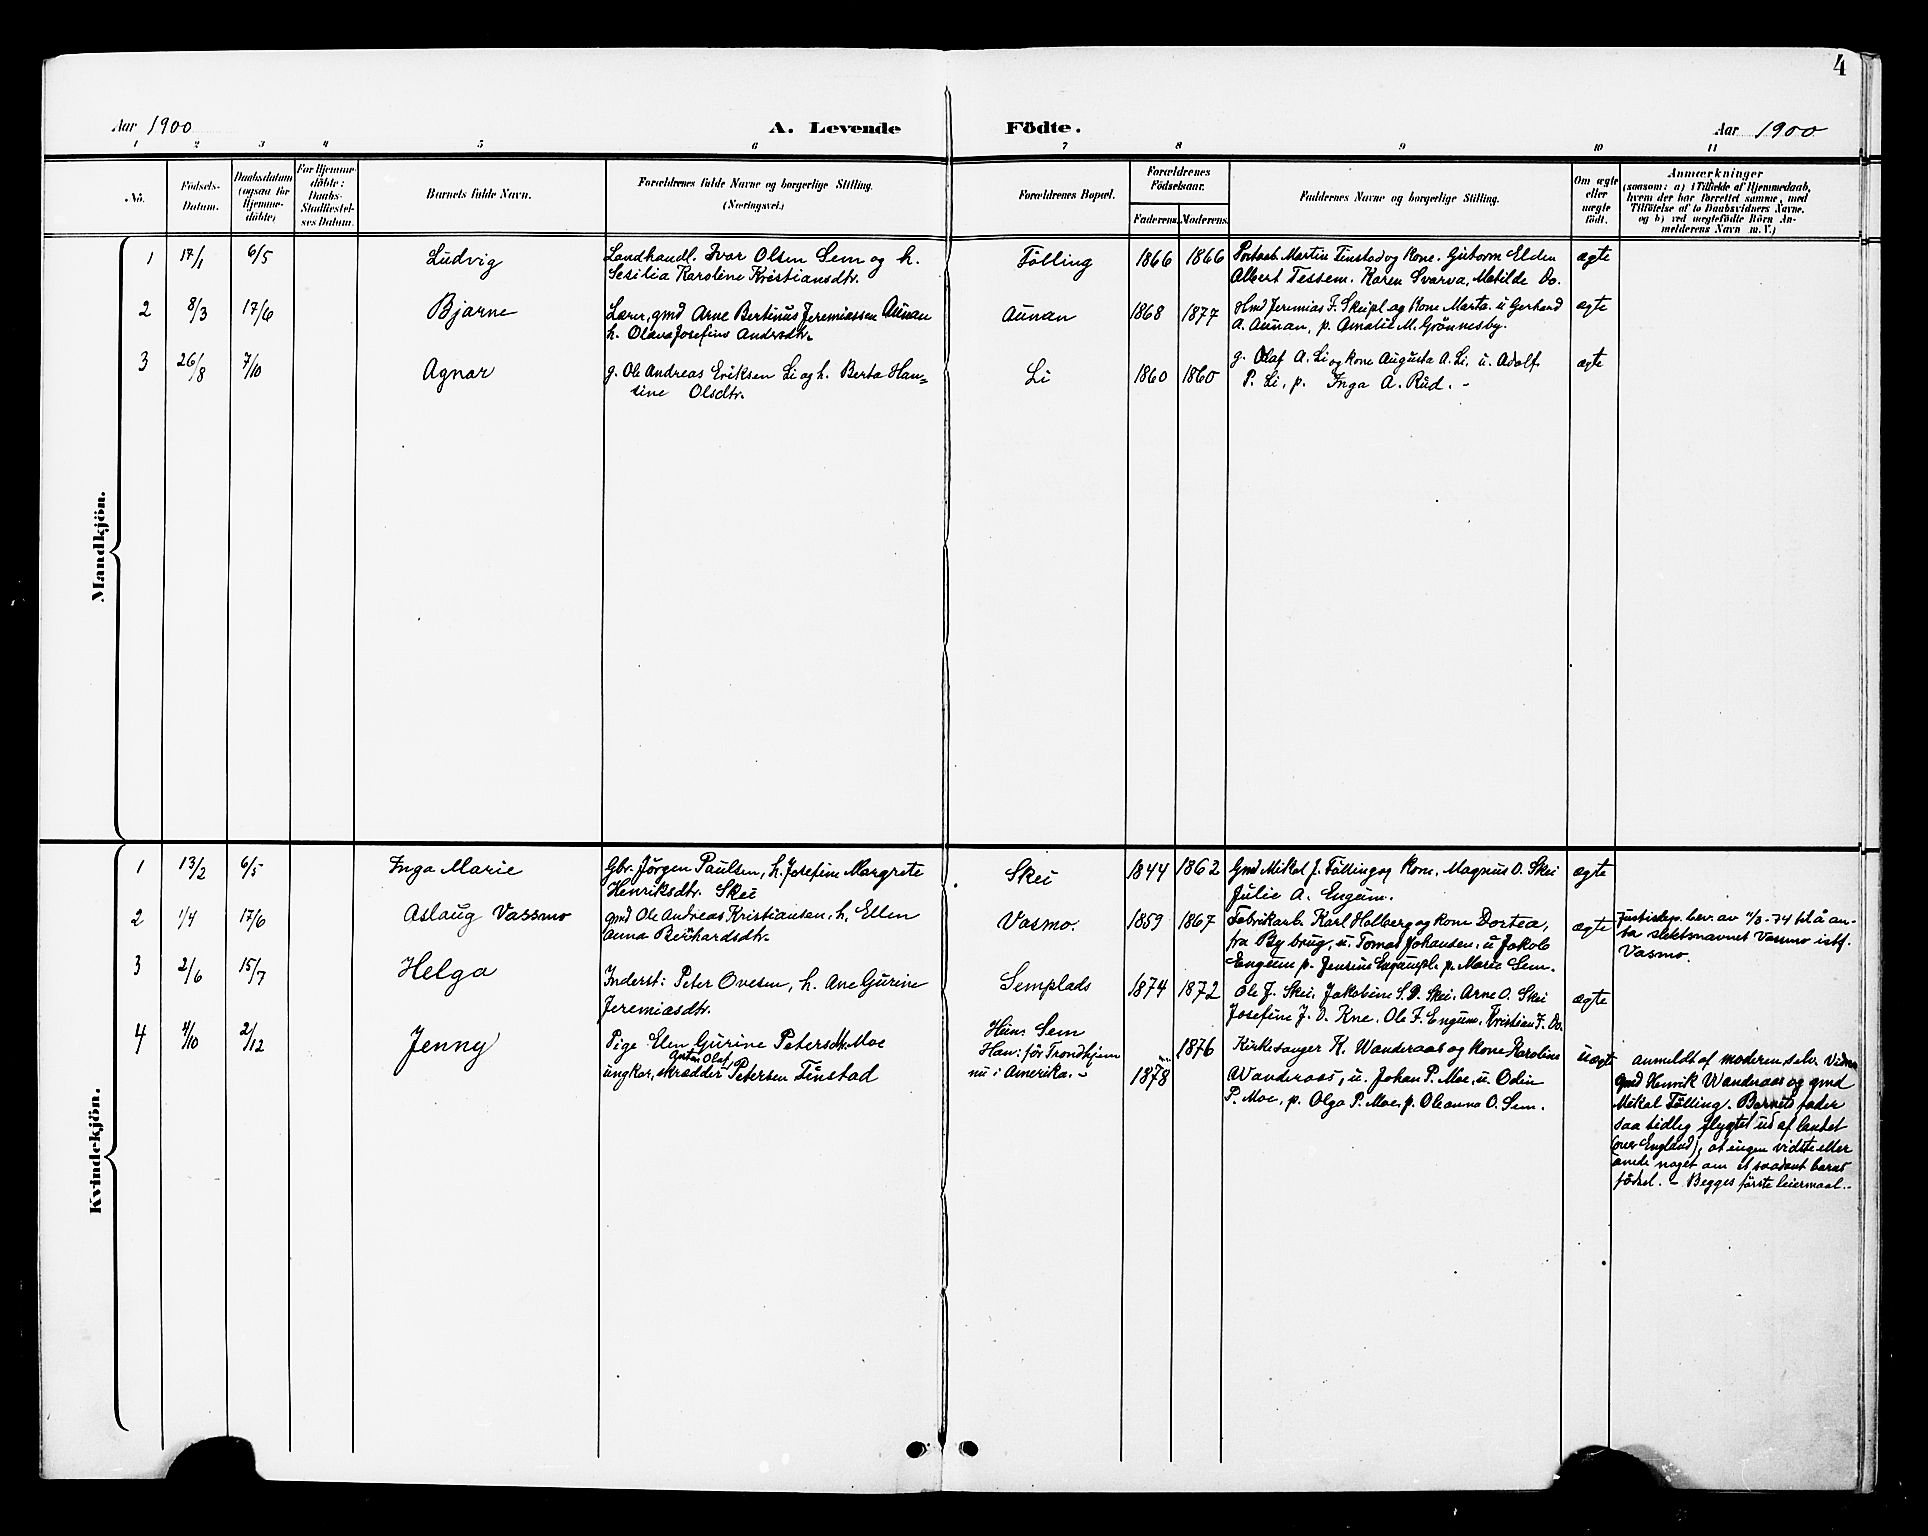 4
Aar 1900 A. Levende Födte. Aar 1900
1 2 3 4 5 6 7 8 9 10 11
No.
Födsels-
Datum.
Daabsdatum
(ogsaa for
Hjemme-
döbte)
For Hjemme-
döbte:
Daabs-
Stadfæstel-
ses Datum.
Barnets fulde Navn.
Forældrenes fulde Navne og borgerlige Stilling.
(Næringsvei.)
Forældrenes Bopæl.
Forældrenes
Födselsaar.
Faderens. Moderens.
Faddernes Navne og borgerlige Stilling.
Om ægte
eller
uægte
födt.
Anmærkninger
(saasom: a) i Tilfælde af Hjemmedaab,
hvem der har forrettet samme, med
Tilföielse af to Daabsvidners Navne.
og b) ved uægtefödte Börn An-
melderens Navn m. V.)
Mandkjön.
1 17/1 6/5 Ludvig
Landhandl. Ivar Olsen Sem og h.
Sesilia Karoline Kristiansdtr.
Fölling 1866 1866
Martin Tinstad og kone. Gutorm Elden
Albert Tessem. Karen Svarva, Matilde Do.
ægte
2 8/3 17/6 Bjarne
Lærer, gmd Arne Bertinus Jeremiassen Aunan
h. Olava Josefine Andrsdtr.
Aunan 1868 1877
Hmd Jeremias F. Skeipl og Kone Marta. u Gerhard
A. Aunan, p. Amalie M. Grönnesby.
ægte
3 26/8 7/10 Agnar
g. Ole Andreas Eriksen Li og h. Berta Han-
sine Olsdtr.
Li 1860 1860
g. Olaf A. Li og kone Augusta A. Li. u. Adolf
P. Li, p. Inga A. Rud. -
ægte
Kvindekjön.
1 13/2 6/5 Inga Marie
Gbr. Jörgen Paulsen, h. Josefine Margrete
Henriksdtr. Skei
Skei 1844 1862
Gmd Mikal J. Fölling og Kone. Magnus O. Skei
Julie A. Engum.
ægte
2 1/4 17/6 Aslaug Vassmo
gmd Ole Andreas Kristiansen, h. Ellen
Anna Bernhardsdtr.
Vasmo. 1859 1867
Fabrikarb. Karl Halberg og kone Dortea,
fra By brug, u. Tomas Johansen. u Jakob
Engum p. Jensine Engumpl. p. Marie Sem.
ægte
Justisdep. bev. av 11/3-74 til å an-
ta slektsnavnet Vassmo istf.
Vasmo.
3 2/6 15/7 Helga
Inderst: Peter Ovesen, h. Ane Gurine
Jeremiasdtr.
Semplads 1874 1872
Ole J. Skei, Jakobine S. P. Skei. Arne O. Skei
Josefine J. O. Kne. Ole F. Engum. Kristian F. Do.
ægte
4 4/10 2/12 Jenny
Pige Elen Gurine Petersdtr. Moe
ungkar, skrædder Anton Olaf Petersen Tinstad
Hun: Sem
Han: för Trondhjem
nu i Amerika. -
1878 1876
Kirkesanger K. Wanderaas og kone Karoline
Wanderaas, u. Johan P. Moe, u. Odin
P. Moe, p. Olga P. Moe, p. Oleanna O. Sem.
uægte
anmeldt af moderen selv. Vidner
gmd Henrik Wanderaas og gmd
Mikal Fölling. Barnets fader
saa tidlig flygtet ud af landet
(over England), at ingen vidste eller
anede noget om et saadant barns
födsel. - Begges förste leiermaal. -